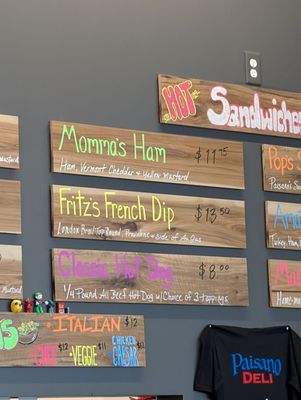 HOT Sandwiches
Momma's Ham $11.75
Ham, Vermont Cheddar & Yellow Mustard
Fritz's French Dip $13.50
London Broil Top Round, Provolone & side of Au Jus
Classic Hot Dog $8.00
1/4 Pound All Beef Hot Dog w/ Choice of 3 toppings
Mustard
Pop's
Paisano's
Turkey,
Home-ma
ITALIAN $12
CHEF $12 VEGGIE $11 CHICKEN CAESAR $12
Paisano
DELI